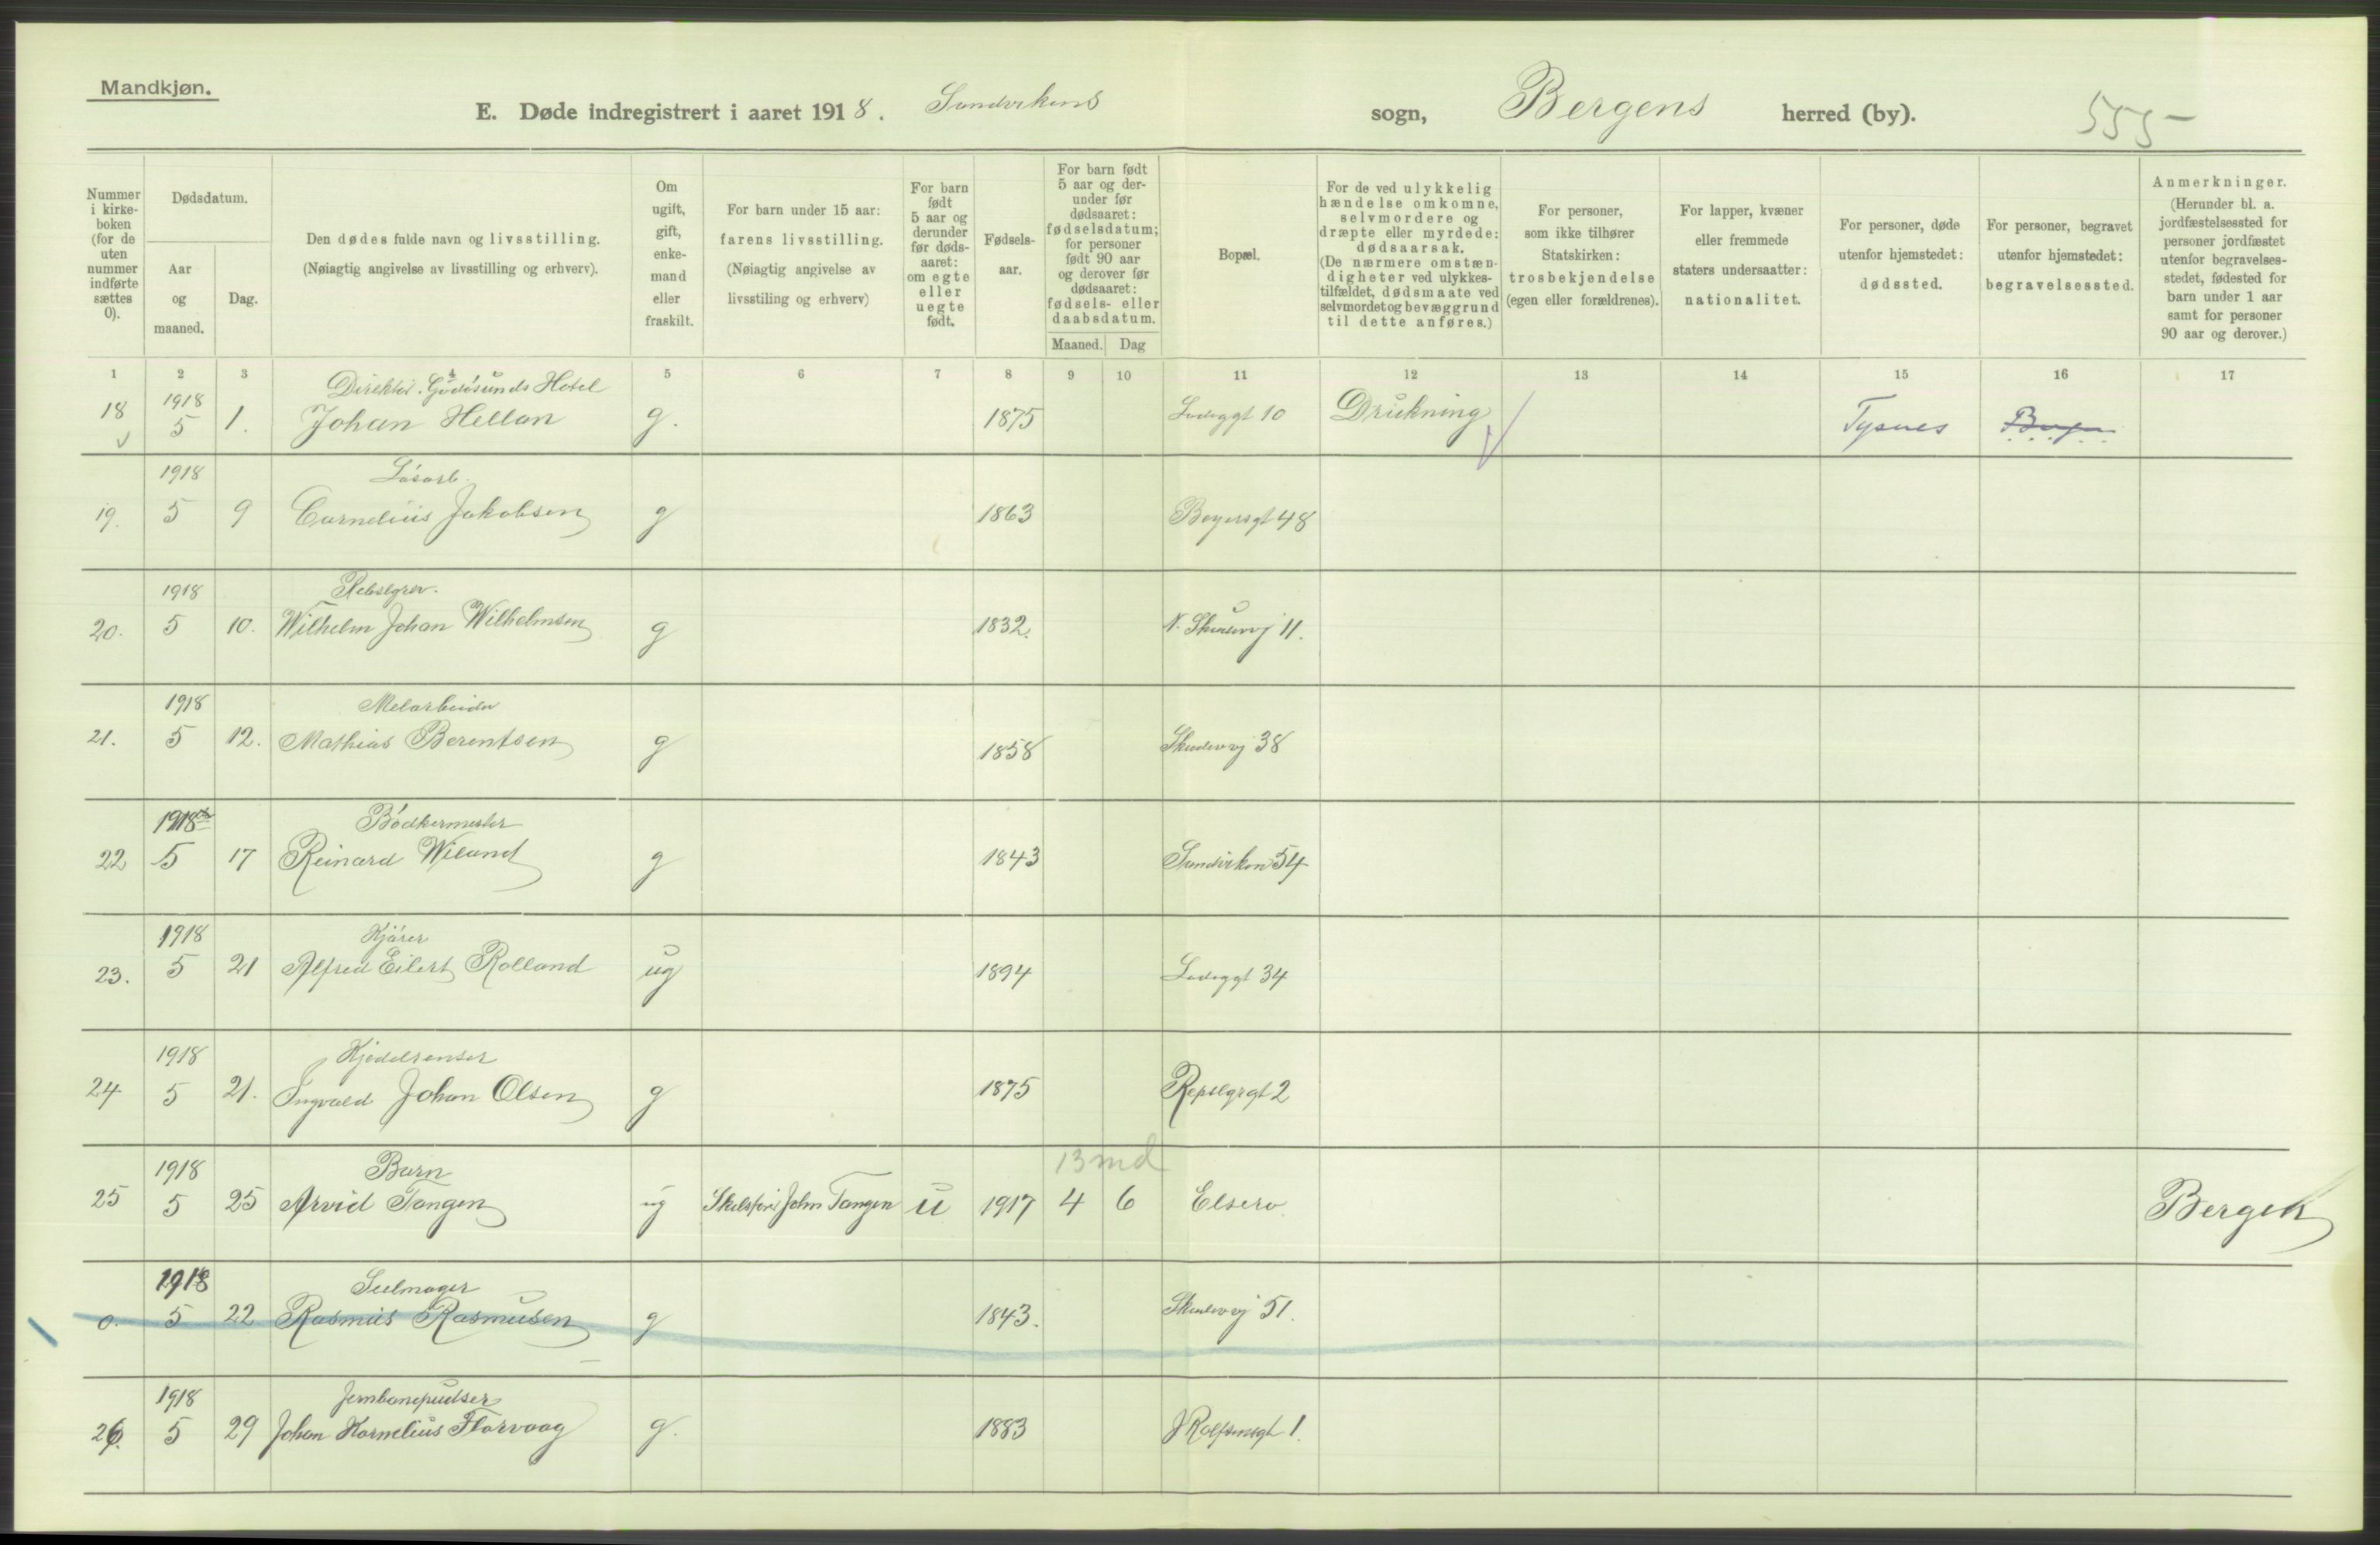 Mandkjøn.
E. Døde indregistrert i aaret 1918. Sandvikens sogn, Bergens herred (by). 555
Nummer i kirke-boken (for de uten nummer indførte sættes 0).
Dødsdatum.
Aar og maaned.
Dag.
Den dødes fulde navn og livsstilling.
(Nøiagtig angivelse av livsstilling og erhverv).
Om ugift, gift, enke-mand eller fraskilt.
For barn under 15 aar: farens livsstilling.
(Nøiagtig angivelse av livsstiling og erhverv)
For barn født 5 aar og derunder før døds-aaret: om egte eller uegte født.
Fødsels-aar.
For barn født 5 aar og der-under før dødsaaret: fødselsdatum; for personer født 90 aar og derover før dødsaaret: fødsels- eller daabsdatum.
Maaned. Dag
Bopæl.
For de ved ulykkelig hændelse omkomne, selvmordere og dræpte eller myrdede: dødsaarsak.
(De nærmere omstæn-digheter ved ulykkes-tilfældet, dødsmaate ved selvmordet og bevæggrund til dette anføres.)
For personer, som ikke tilhører Statskirken: trosbekjendelse (egen eller forældrenes).
For lapper, kvæner eller fremmede staters undersaatter: nationalitet.
For personer, døde utenfor hjemstedet: dødssted.
For personer, begravet utenfor hjemstedet: begravelsessted.
Anmerkninger.
(Herunder bl. a. jordfæstelsessted for personer jordfæstet utenfor begravelses-stedet, fødested for barn under 1 aar samt for personer 90 aar og derover.)
1 2 3 4 5 6 7 8 9 10 11 12 13 14 15 16 17
1918 Direktør. Godøsunds Hotel
18 5 1. Johan Hellan g. 1875 Ladeggt 10 Drukning Tysnes Bergen
1918 Løsarb.
19. 5 9 Cornelius Jakobsen g 1863 Beyersgt 48
1918 Rebslgrer.
20. 5 10. Wilhelm Johan Wilhelmsen g 1832. N. Skudevvj 11.
1918 Melarbeider
21. 5 12. Mathias Berentsen g 1858 Skudevvj 38
1918 Bødkermester
22 5 17 Reinard Wiland g 1843 Sandviken 54
1918 Kjører
23. 5 21 Alfred Eilert Rolland ug 1894 Ladeggt 34
1918 Kjedelrenser
24 5 21. Ingvald Johan Olsen g 1875 Repslgrgt 2
1918 Barn 13 md
25 5 25 Arvid Tangen ug John Tangen u 1917 4 6 Elsero Bergen
1918 Seilmager
0. 5 22 Rasmus Rasmusen g 1843. Skudevvj 51.
1918 Jernbanepudser
26. 5 29 Johan Kornelius Florvaag g. 1883 J Rolfsensgt 1.